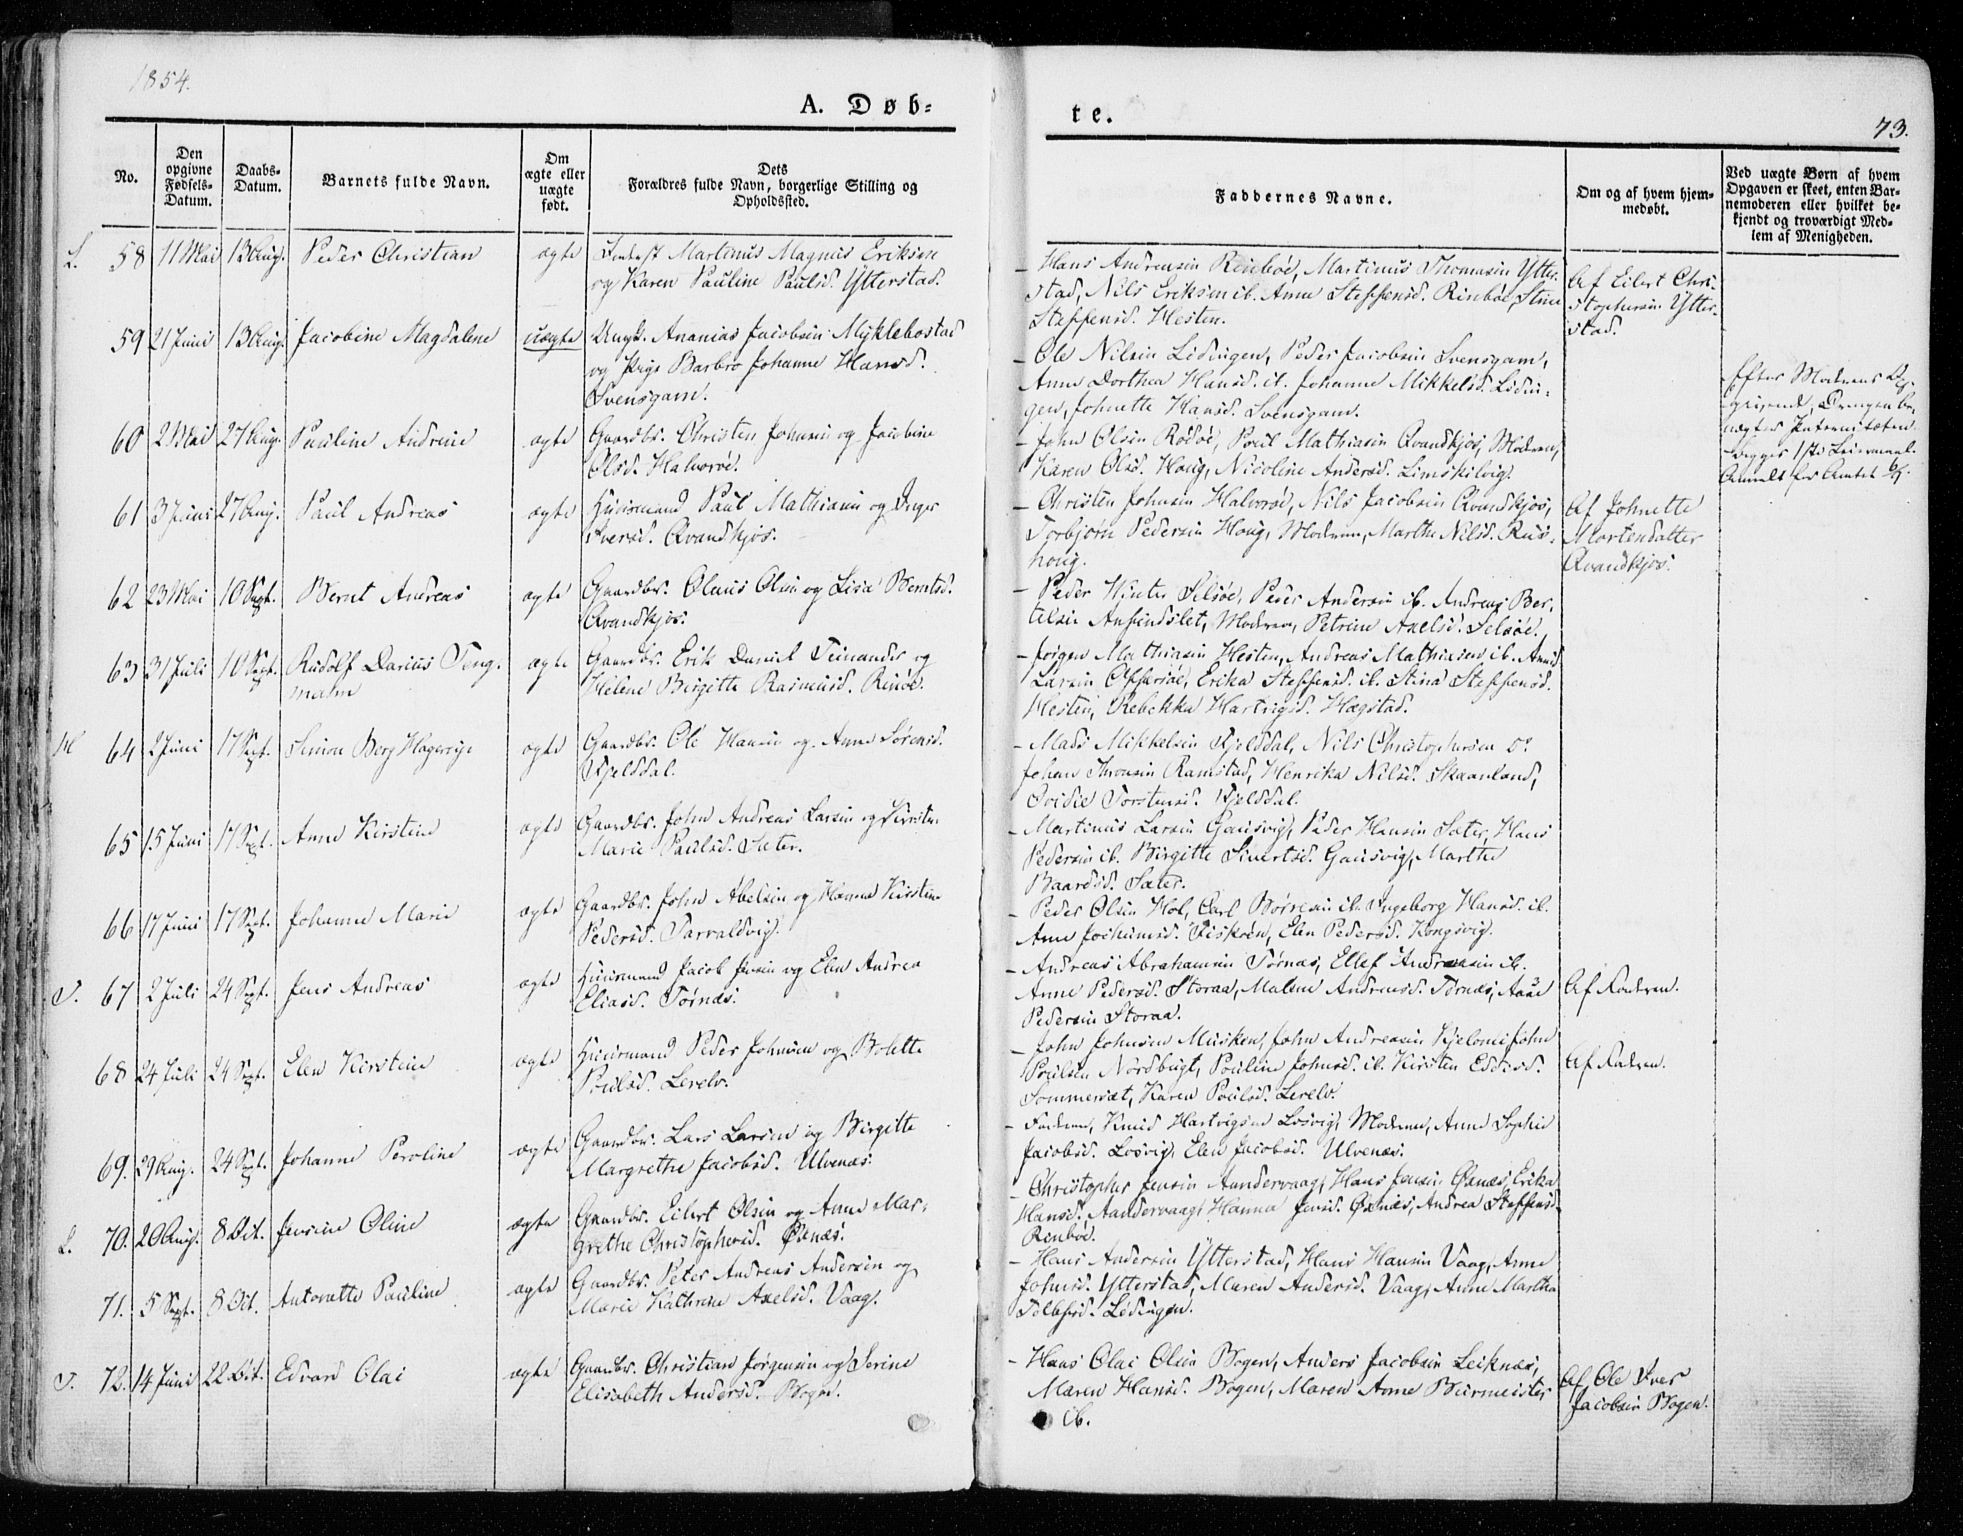 1854.
A. Døb-
te.
73.
No.
Den opgivne Fødsels-Datum.
Daabs-Datum.
Barnets fulde Navn.
Om ægte eller uægte født.
Dets
Forældres fulde Navn, borgerlige Stilling og
Opholdssted.
Faddernes Navne.
Om og af hvem hjem-
medøbt.
Ved uægte Børn af hvem
Opgaven er skeet, enten Bar-
nemoderen eller hvilket be-
kjendt og troværdigt Med-
lem af Menigheden.
L. 58 11 Mai 13 Aug. Peder Christian ægte Inderst Martinus Magnus Eriksen
og Karen Pauline Paulsd. Ytterstad.
- Hans Andreasen Rinbøe, Martinus Thomasen Ytter-
stad, Nils Eriksen ib. Anne Steffensd. Rinbøe, Stine
Steffensd. Hesten.
Af Eilert Chri-
stophersen Ytter-
stad.
59 21 Juni 13 Aug. Jacobine Magdalene uægte Ungk. Ananias Jacobsen Myklebostad
og Pige Barbro Johanne Hansd.
Svensgam.
- Ole Nilsen Lødingen, Peder Jacobsen Svensgam,
Anne Dorthea Hansd. ib. Johanne Mikkelsd. Lødin-
gen, Johnette Hansd. Svensgam.
Efter Moderens
60 2 Mai 27 Aug. Pauline Andrine ægte Gaardbr. Christen Johnsen og Jacobine
Olsd. Halvorøe.
- John Olsen Rødøe, Poul Mathiasen Qvandkjos, Moderen,
Karen Olsd. Houg, Nicoline Andersd. Limskilvig.
61 3 Juni 27 Aug. Paul Andreas ægte Huusmand Paul Mathiasen og Inger
Iversd. Qvandkjos.
- Christen Johnsen Halvorøe, Nils Jacobsen Qvandkjos,
Torbjørn Pedersen Houg, Moderen, Marthe Nilsd. Rus-
houg.
Af Johnette
Mortensdatter
Qvandkjos.
62 23 Mai 10 Sept. Bernt Andreas ægte Gaardbr. Olaus Olsen og Lisa Berntsd.
Qvandkjos.
- Peder Winter Selsøe, Peder Andersen ib. Andreas Ber-
telsen Anfindslet, Moderen, Petrine Axelsd. Selsøe.
63 31 Juli 10 Sept. Rudolf Darius Teng-
mann ægte Gaardbr. Erik Daniel Teinander og
Helene Birgitte Rasmusd. Rinøe.
- Jørgen Mathiasen Hesten, Andreas Mathiasen ib.
Larsen Offersøe, Erika Steffensd. ib. Stina Steffensd.
Hesten, Rebekka Hartvigsd. Hægstad.
64 2 Juni 17 Sept. Simon Berg Hagerup ægte Gaardbr. Ole Hansen og Anne Sørensd.
Fjelddal.
- Mads Mikkelsen Fjelddal, Nils Christophersen do
Johan Thomsen Ramstad, Henrika Nilsd. Skaanland,
Ovidie Torstensd. Fjelddal.
65 15 Juni 17 Sept. Anne Kirstine ægte Gaardbr. John Andreas Larsen og Kirsten
Marie Paulsd. Sæter.
- Martinus Larsen Gausvig, Peder Hansen Sæter, Hans
Pedersen ib. Birgitte Sivertsd. Gausvig, Marthe
Baardsd. Sæter.
66 17 Juni 17 Sept. Johanne Marie ægte Gaardbr. John Abelsen og Hanna Kirstine
Pedersd. Tarraldvig.
- Peder Olsen Hol, Carl Børresen ib. Ingeborg Hansd. ib.
Anne Jochumsd. Fiskøen, Elen Pedersd. Kongsvig.
T. 67 2 Juli 24 Sept. Jens Andreas ægte Huusmand Jacob Jensen og Elen Andrea
Eliasd. Tørnæs.
- Andreas Abrahamsen Tørnæs, Ellef Andreasen ib.
Anne Pedersd. Storaa, Malene Andreasd. Tørnæs, Aase
Pedersen Storaa.
Af Faderen.
68 24 Juli 24 Sept. Elen Kirstine ægte Huusmand Peder Johnsen og Bolette
Poulsd. Lerelv.
- John Johnsen Musken, John Andreasen Kjelomi, John
Poulsen Nordbugt, Pauline Johnsd. ib. Kirsten
Sommersæt, Karen Poulsd. Lerelv.
Af Faderen.
69. 29 Aug. 24 Sept. Johanne Peroline ægte Gaardbr. Lars Larsen og Birgitte
Margrethe Jacobsd. Ulvenæs.
- Faderen, Knud Hartvigsen Losvig, Moderen, Anne Sophie
Jacobsd. Losvig, Elen Jacobsd. Ulvenæs.
L. 70. 20 Aug. 8 Oct. Jensine Oline ægte Gaardbr. Eilert Olsen og Anne Mar-
grethe Christophersd. Øxnæs.
- Christopher Jensen Aandervaag, Hans Jensen Øxnæs, Erika
Hansd. Aandervaag, Hanna Jensd. Øxnæs, Andrea Steffensd.
Renbøe.
71. 5 Sept. 8 Oct. Antonette Pauline ægte Gaardbr. Peter Andreas Andersen og
Marie Kathrine Axelsd. Vaag.
- Hans Andersen Ytterstad, Hans Hansen Vaag, Anne
Johnsd. Ytterstad, Maren Andersd. Vaag, Anne Martha
Tollefsd. Lødingen.
T. 72. 14 Juni 22 Oct. Edvard Olai ægte Gaardbr. Christian Jørgensen og Serine
Elisabeth Andersd. Bogen.
- Hans Olai Olsen Bogen, Anders Jacobsen Leiknæs,
Maren Hansd. Bogen, Maren Anne Burmeister
ib.
Af Ole Iver
Jacobsen Bogen.